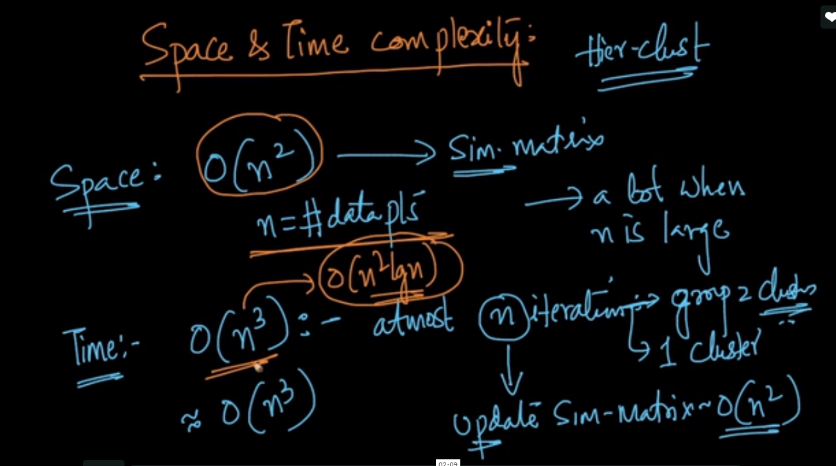 Space & Time complexity:
Hier-clust
Space: O(n²) → Sim. matrix
n = # data pts
→ a lot when
n is large
O(n² lg n)
Time:- O(n³) :- atmost n iterations → group 2 clusters
↳ 1 cluster
≈ O(n³)
Update Sim-Matrix ~ O(n²)
02-09